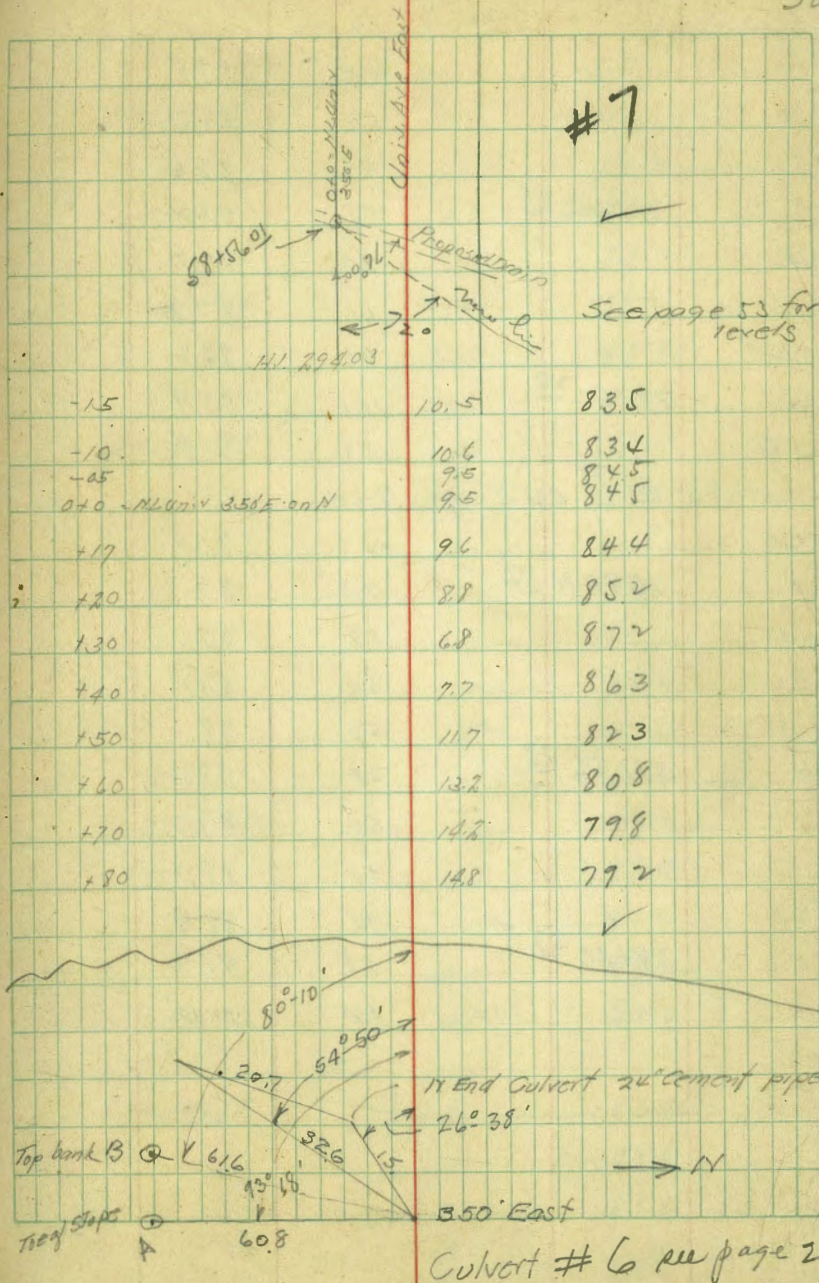 Univ. Ave East
0+0 = NL Univ
350' E
#7
58+56.01
76°00'
Proposed
line
72°
See page 53 for
levels
H.I. 294.03
-15 10.5 83.5
-10 10.6 83.4
-05 9.5 84.5
0+0 = NL Univ 350'E on N 9.5 84.5
+17 9.6 84.4
+20 8.8 85.2
+30 6.8 87.2
+40 7.7 86.3
+50 11.7 82.3
+60 13.2 80.8
+70 14.2 79.8
+80 14.8 79.2
80°-10'
54°50'
20.7
N End Culvert 24" Cement pipe
26°-38'
32.6
15
Top bank B 61.6
N
93°18'
350' East
Toe of Slope
A
60.8
Culvert #6 see page 2